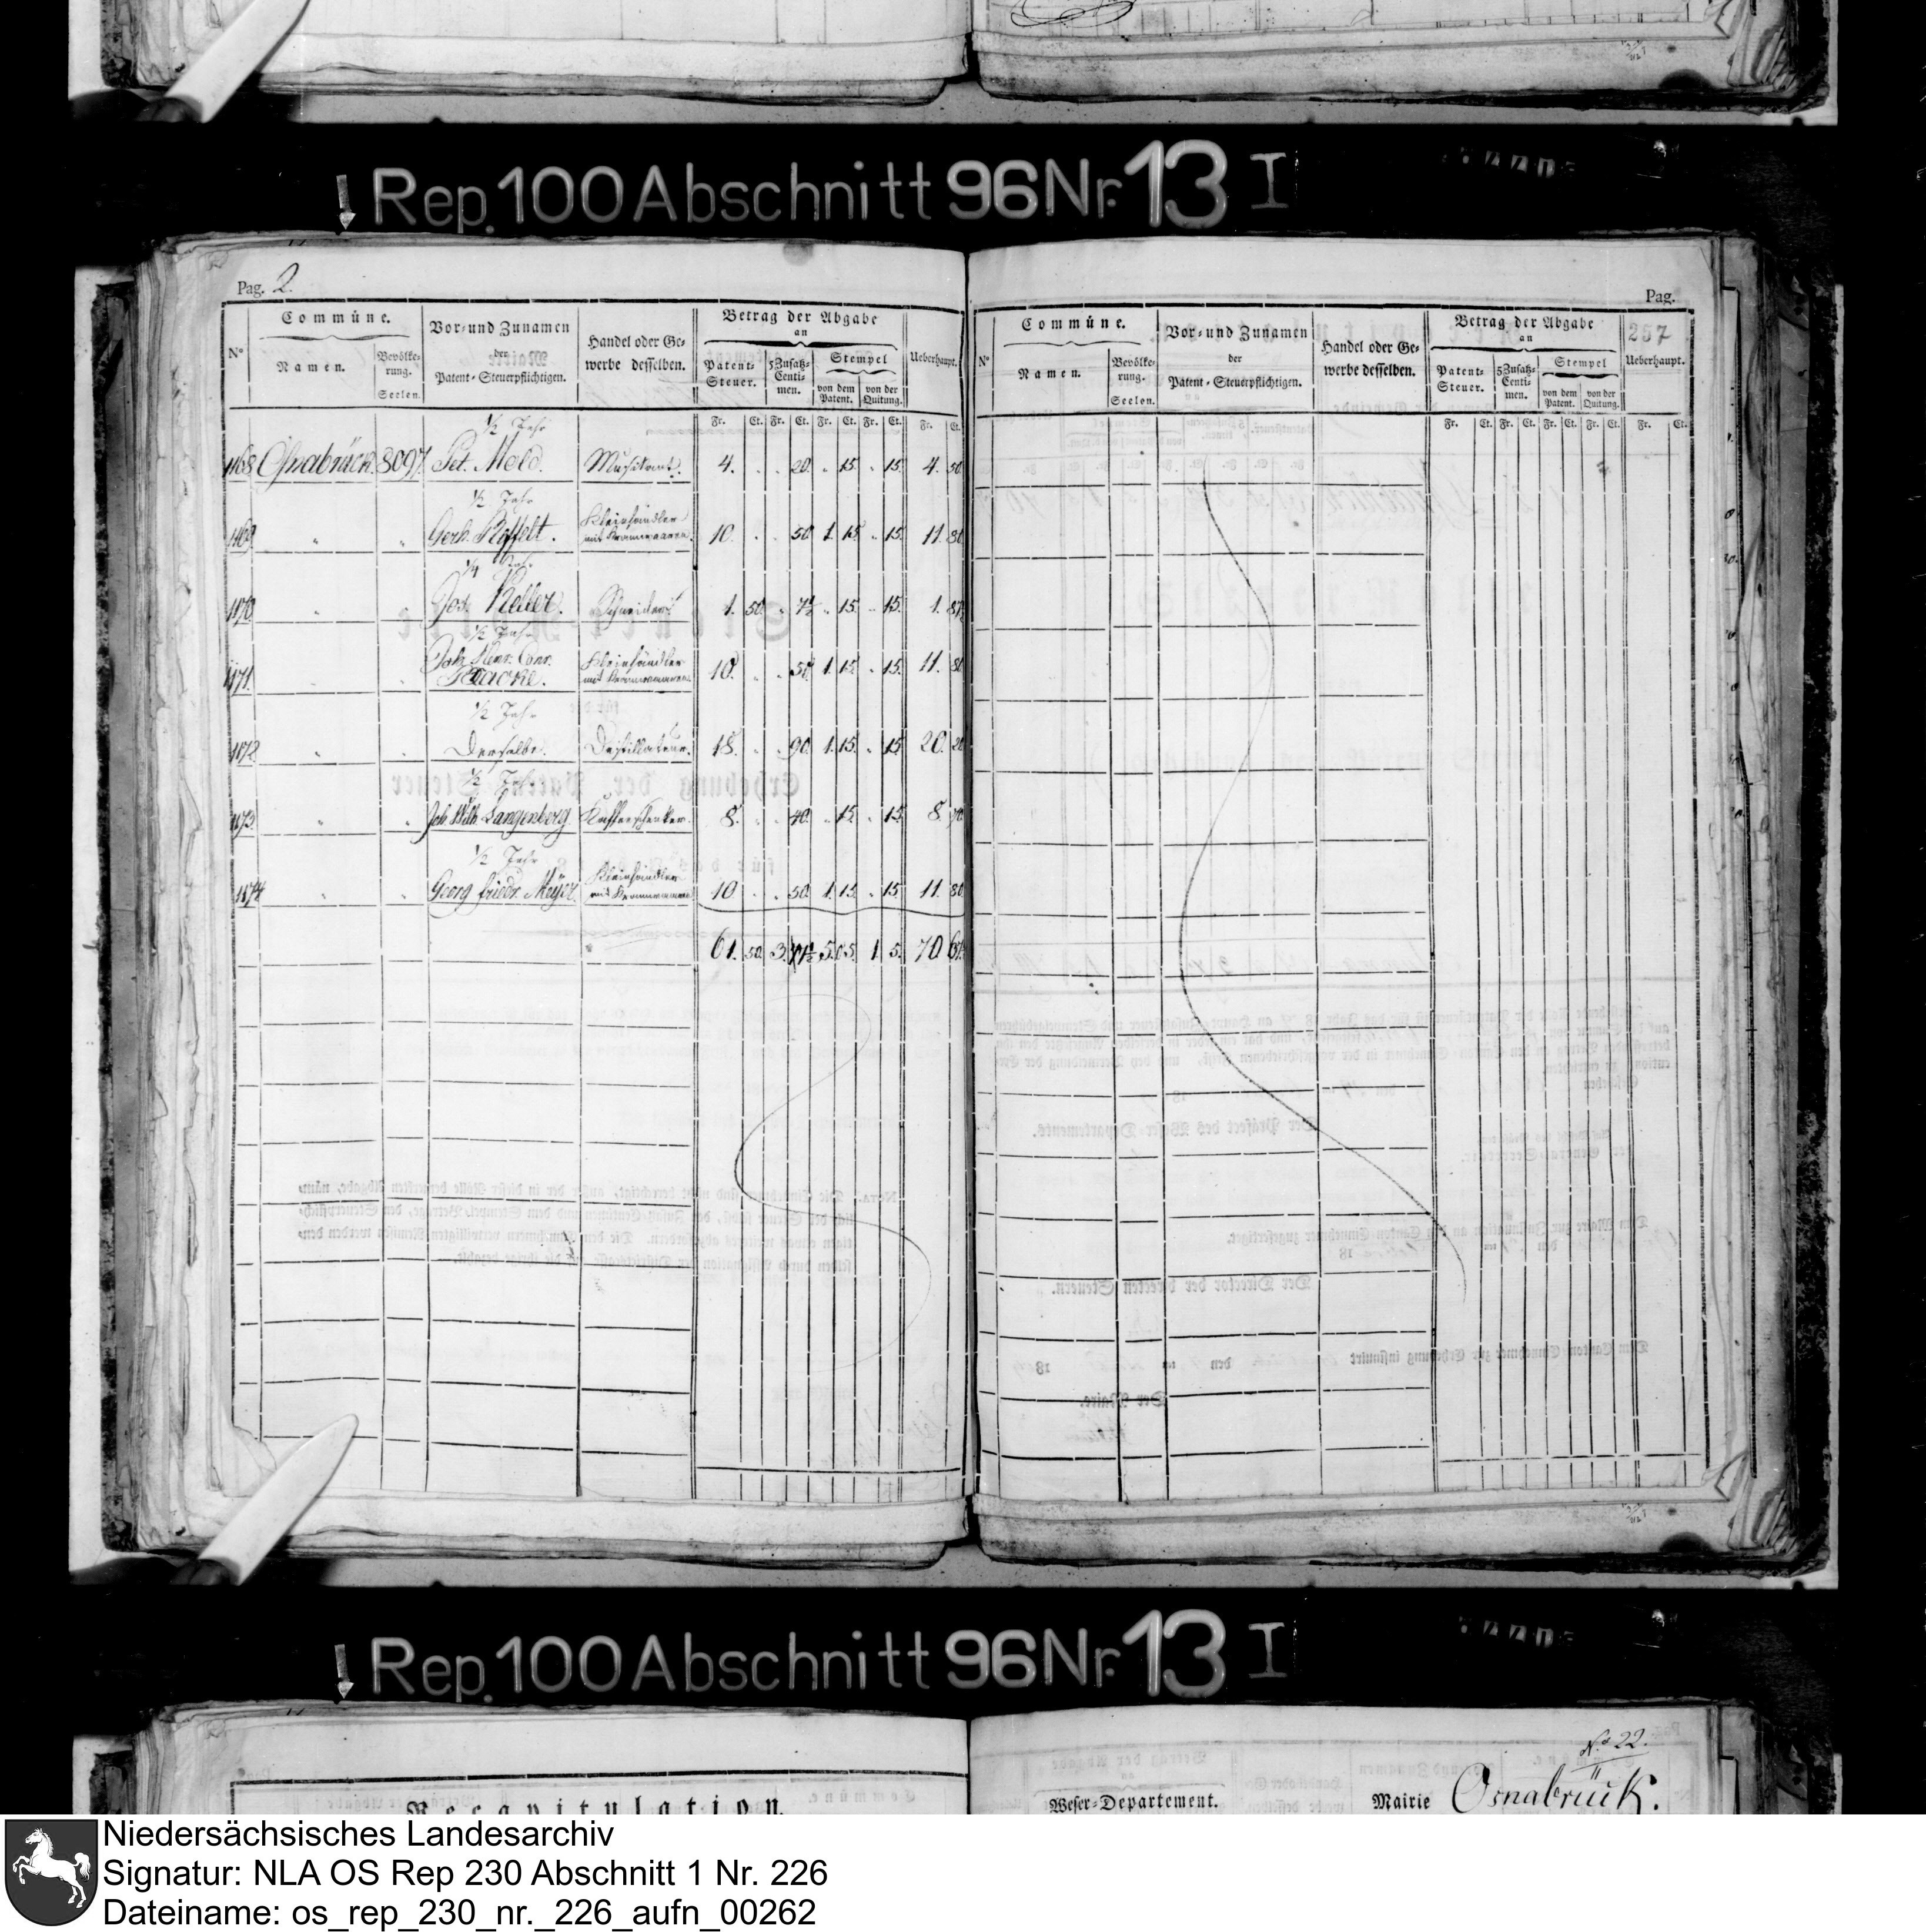 Rep. 100 Abschnitt 96 Nr. 13 I
Pag. 2.
N°
Commüne.
Namen.
Bevölke-
rung.
Seelen.
Vor- und Zunamen
der
Patent-Steuerpflichtigen.
Handel oder Ge-
werbe desselben.
Betrag der Abgabe
an
Patent-
Steuer.
5 Zusatz-
Centi-
men.
Stempel
von dem
Patent.
von der
Quitung.
Ueberhaupt.
Fr. Ct. Fr. Ct. Fr. Ct. Fr. Ct. Fr. Ct.
½ Jahr
1168 Osnabrück 8097. Pet. Meld. Musikant. 4. . . 20. . 15. . 15. 4. 50.
½ Jahr
Kleinhändler
1169 " " Gerh. mit Kramwaaren. 10. . . 50. 1. 15. . 15. 11. 80.
¼ Jahr
1170 " " Jos. Keller. Schneider. 1. 50. . 7½ . 15. . 15. 1. 87½
½ Jahr
Joh. Henr. Conr. Kleinhändler
1171. " " mit Kramwaaren. 10. . . 50. 1. 15. . 15. 11. 80
½ Jahr
1172 " " Derselbe. Destillateur. 18. . . 90. 1. 15. . 15. 20. 20
½ Jahr
1173. " " Joh. Wilh. Langenberg Kaffeeschenker. 8. . . 40. . 15. . 15. 8. 70
½ Jahr
Kleinhändler
1174 " " Georg Friedr. Meyer. mit Kramwaaren 10. . . 50. 1. 15. . 15. 11. 80
61. 50. 3. 7½ 5. 05. 1. 5. 70. 67½
Pag.
257
N°
Commüne.
Namen.
Bevölke-
rung.
Seelen.
Vor- und Zunamen
der
Patent-Steuerpflichtigen.
Handel oder Ge-
werbe desselben.
Betrag der Abgabe
an
Patent-
Steuer.
5 Zusatz-
Centi-
men.
Stempel
von dem
Patent.
von der
Quitung.
Ueberhaupt.
Fr. Ct. Fr. Ct. Fr. Ct. Fr. Ct. Fr. Ct.
Rep. 100 Abschnitt 96 Nr. 13 I
Recapitulation.
N° 22.
Weser-Departement.
Mairie Osnabrück.
Niedersächsisches Landesarchiv
Signatur: NLA OS Rep 230 Abschnitt 1 Nr. 226
Dateiname: os_rep_230_nr._226_aufn_00262